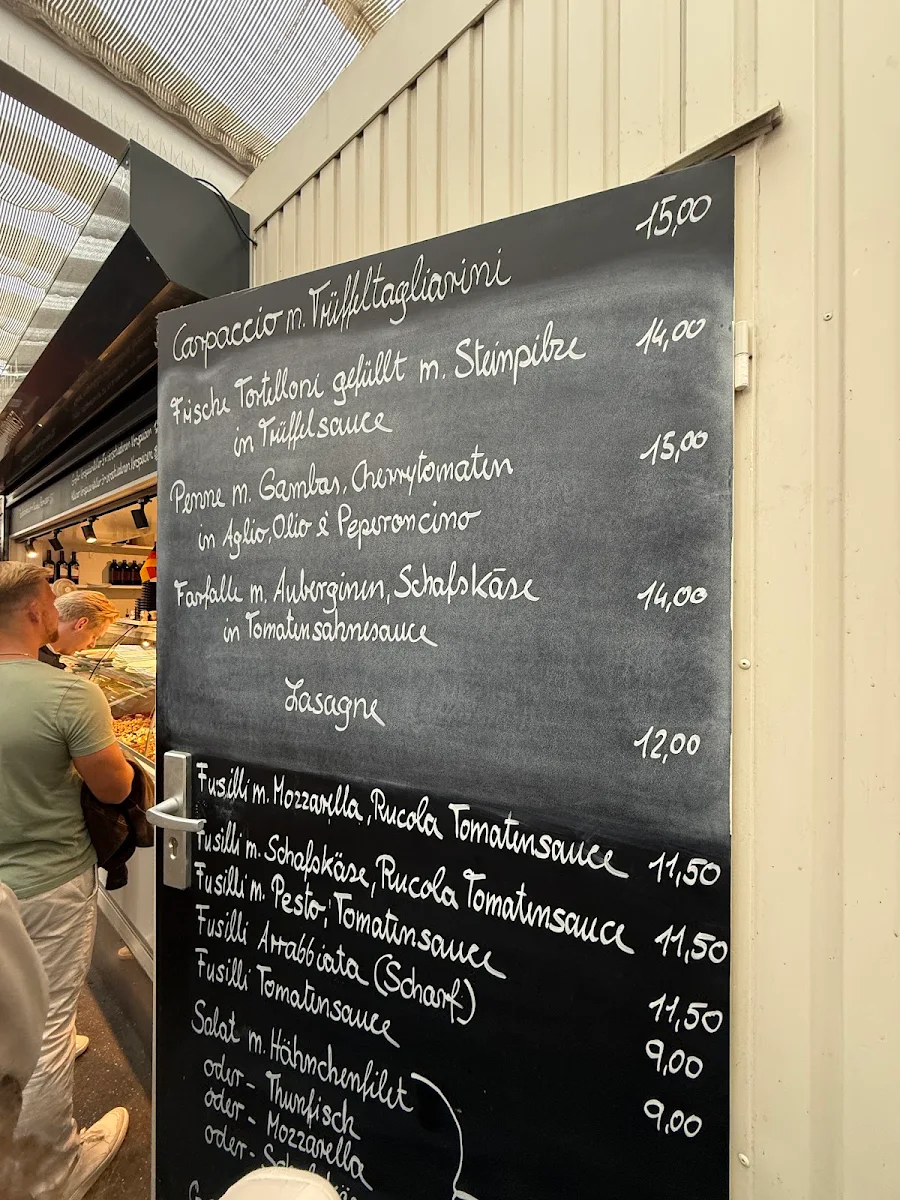 15,00
Carpaccio m. Trüffeltagliarini
14,00
Frische Tortelloni gefüllt m. Steinpilze
in Trüffelsauce
15,00
Penne m. Gambas, Cherrytomaten
in Aglio, Olio è Peperoncino
Farfalle m. Auberginen, Schafskäse 14,00
in Tomatensahnesauce
Lasagne
12,00
Fusilli m. Mozzarella, Rucola Tomatensauce 11,50
Fusilli m. Schafskäse, Rucola Tomatensauce 11,50
Fusilli m. Pesto, Tomatensauce 11,50
Fusilli Arrabbiata (Scharf) 9,00
Fusilli Tomatensauce 9,00
Salat m. Hähnchenfilet
oder - Thunfisch
oder - Mozzarella
oder -